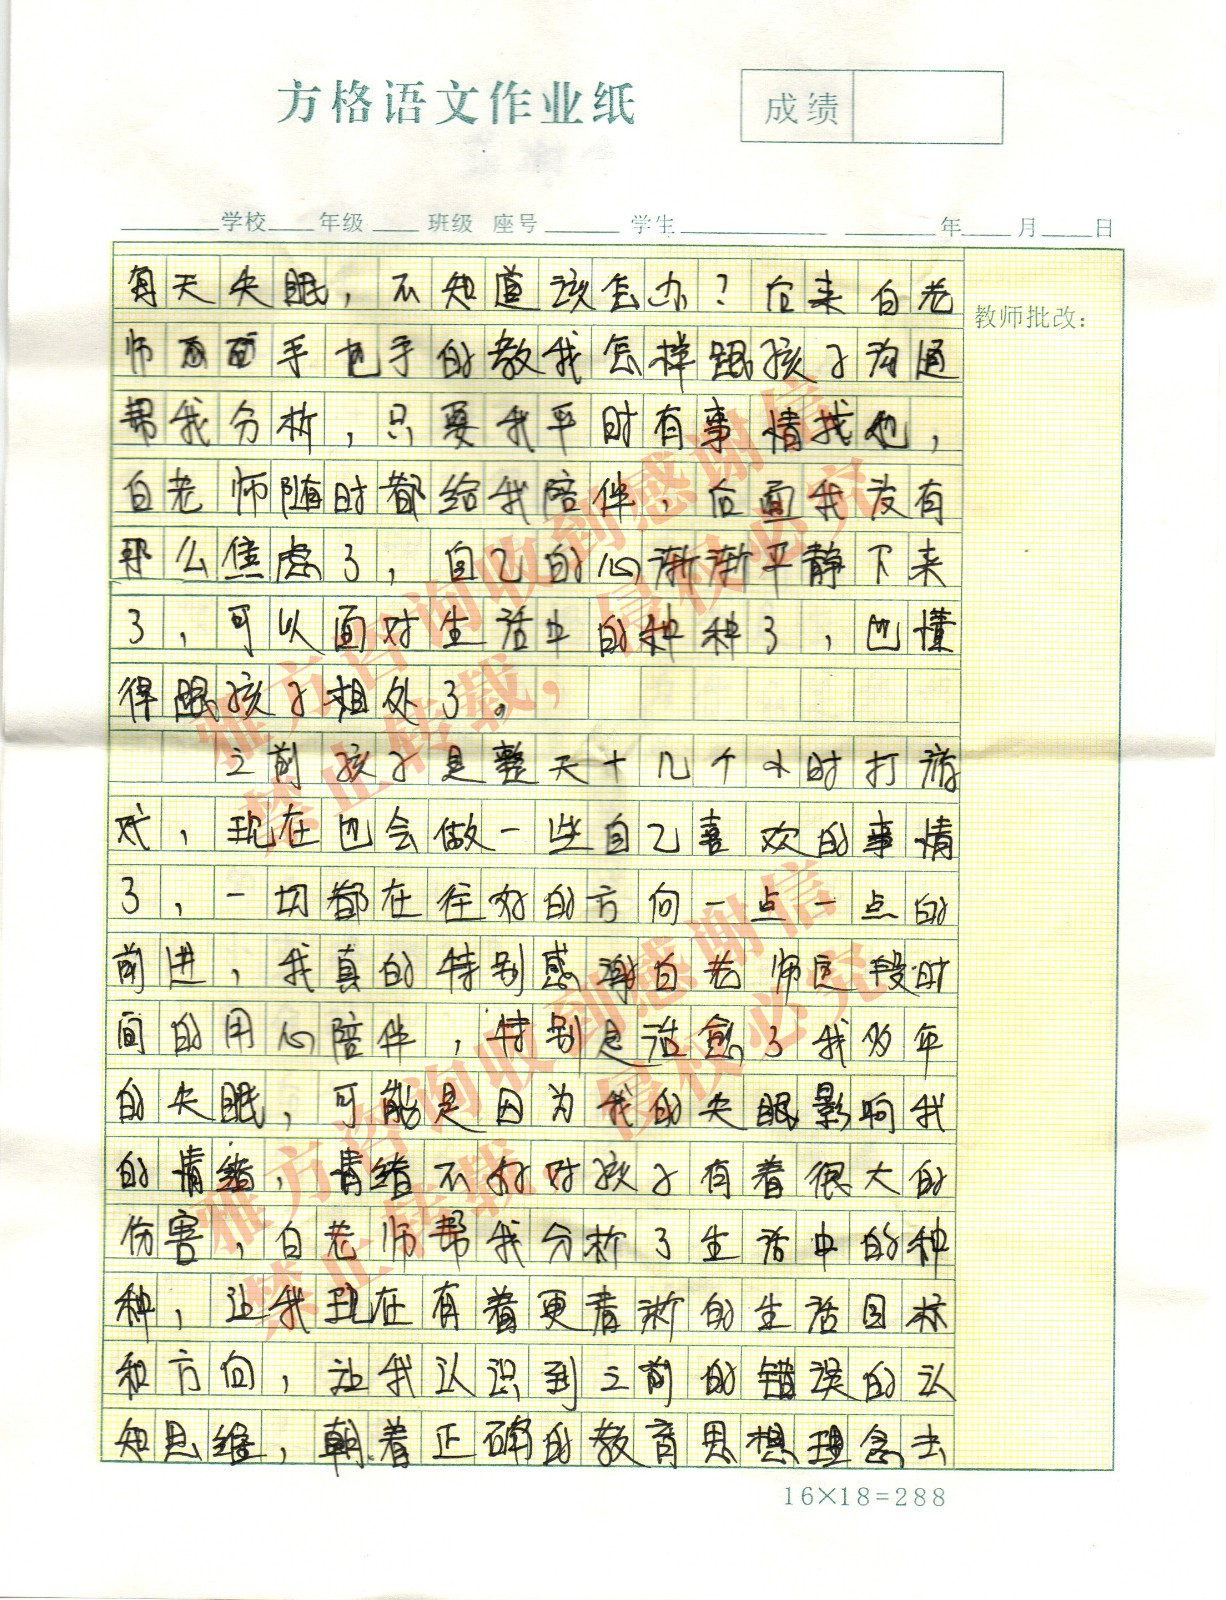 方格语文作业纸
成绩
学校 年级 班级 座号 学生 年 月 日
教师批改：
每天失眠，不知道该怎办？后来白老
师 手把手的教我怎样跟孩子沟通
帮我分析，只要我平时有事情找她，
白老师随时都给我陪伴，后面我没有
那么焦虑了，自己的心渐渐平静下来
了，可以面对生活中的种种了，也懂
得跟孩子相处了。
之前孩子是整天十几个小时打游
戏，现在也会做一些自己喜欢的事情
了，一切都在往好的方向一点一点的
前进，我真的特别感谢白老师这段时
间的用心陪伴，特别是治愈了我多年
的失眠，可能是因为我的失眠影响我
的情绪，情绪不好对孩子有着很大的
伤害，白老师帮我分析了生活中的种
种，让我现在有着更 的生活目标
和方向，让我认识到之前的错误的认
知思维，朝着正确的教育思想理念去
16×18=288
雅方咨询收到感谢信
禁止转载，侵权必究
雅方咨询收到感谢信
禁止转载，侵权必究